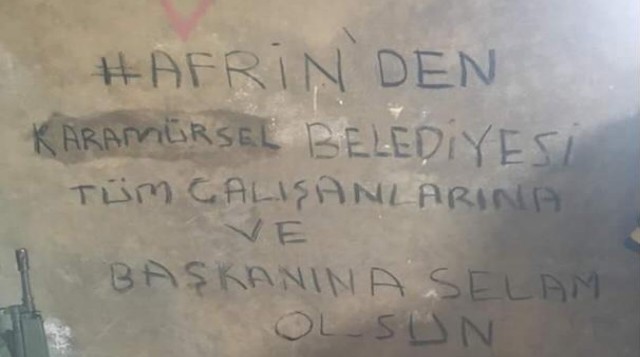 #AFRİN'DEN
KARAMÜRSEL BELEDİYESİ
TÜM ÇALIŞANLARINA
VE
BAŞKANINA SELAM
OLSUN